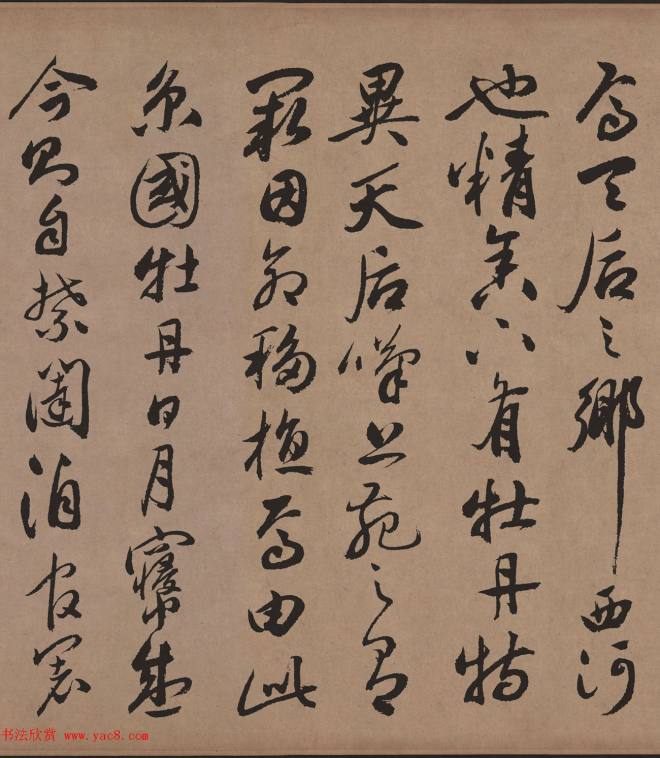 焉天后之鄉西河
也精舍下有牡丹特
異天后嘆上苑之有
闕因命移植焉由此
京國牡丹日月寖盛
今則自禁闥洎官署
书法欣赏 www.yac8.com